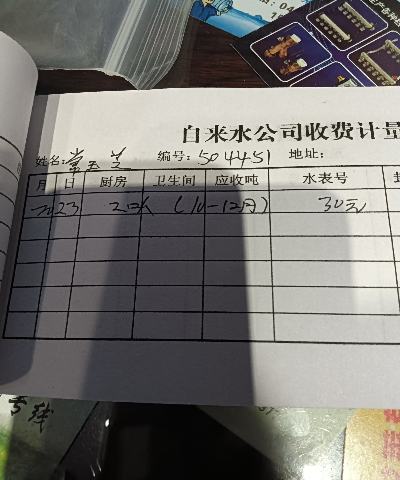 自来水公司收费计量
姓名:常玉芝 编号:504451 地址:
月 日 厨房 卫生间 应收吨 水表号
2023 2口人 (10-12月) 30元